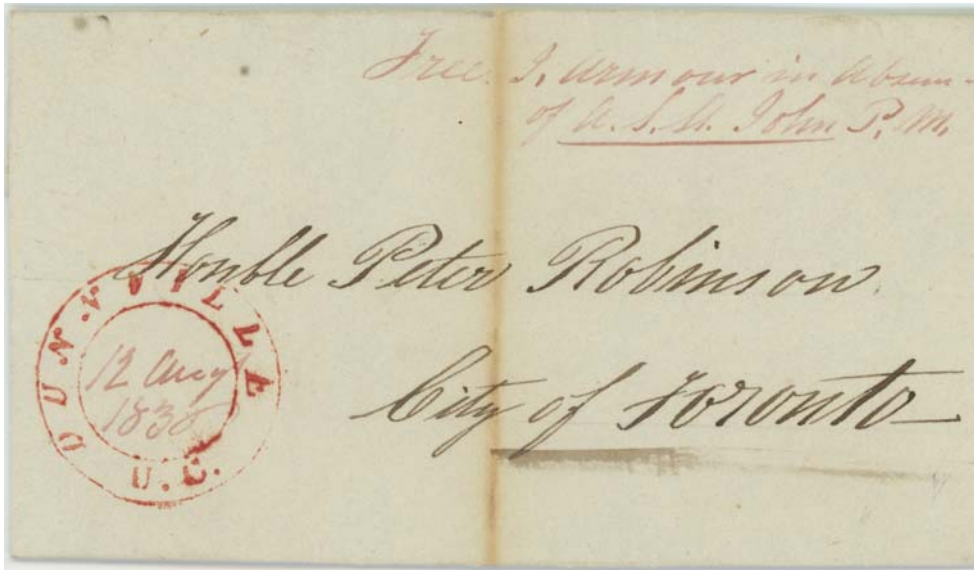 Free. J. Armour in Absen-
of A. S. St. John P. M.
Honble Peter Robinson.
City of Toronto
DUNNVILLE
12 Augt
1835
U.C.